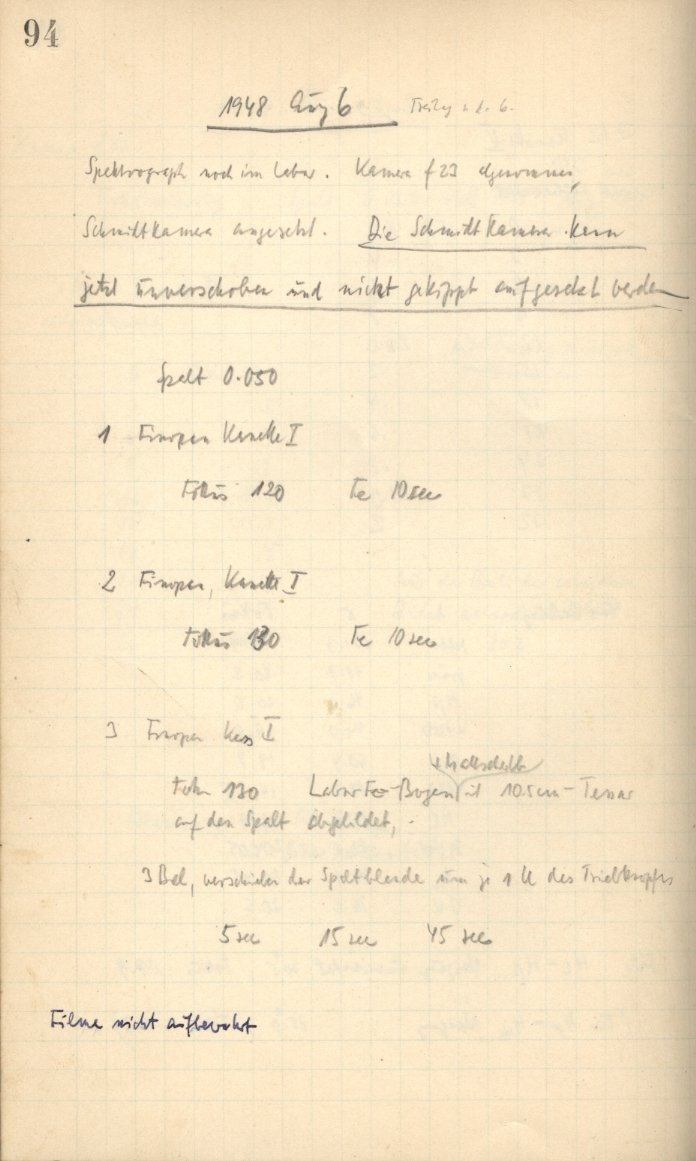 94
1948 Aug 6
Spektrograph noch im Labor. Kamera f 23 abgenommen,
Schmidt Kamera angesetzt. Die Schmidt Kamera kann
jetzt unverschoben und nicht gekippt aufgesetzt werden
Spalt 0.050
1 Kassette I
Fokus 120 Fe 10 sec
2 Kassette I
Fokus 130 Fe 10 sec
3 Kass I
Fokus 130 Labor Fe-Bogen mit 10.5 cm - Tessar
auf den Spalt abgebildet,
3 Bel, verschieben der Spaltblende um je 1 U des Triebknopfes
5 sec 15 sec 45 sec
Filme nicht aufbewahrt